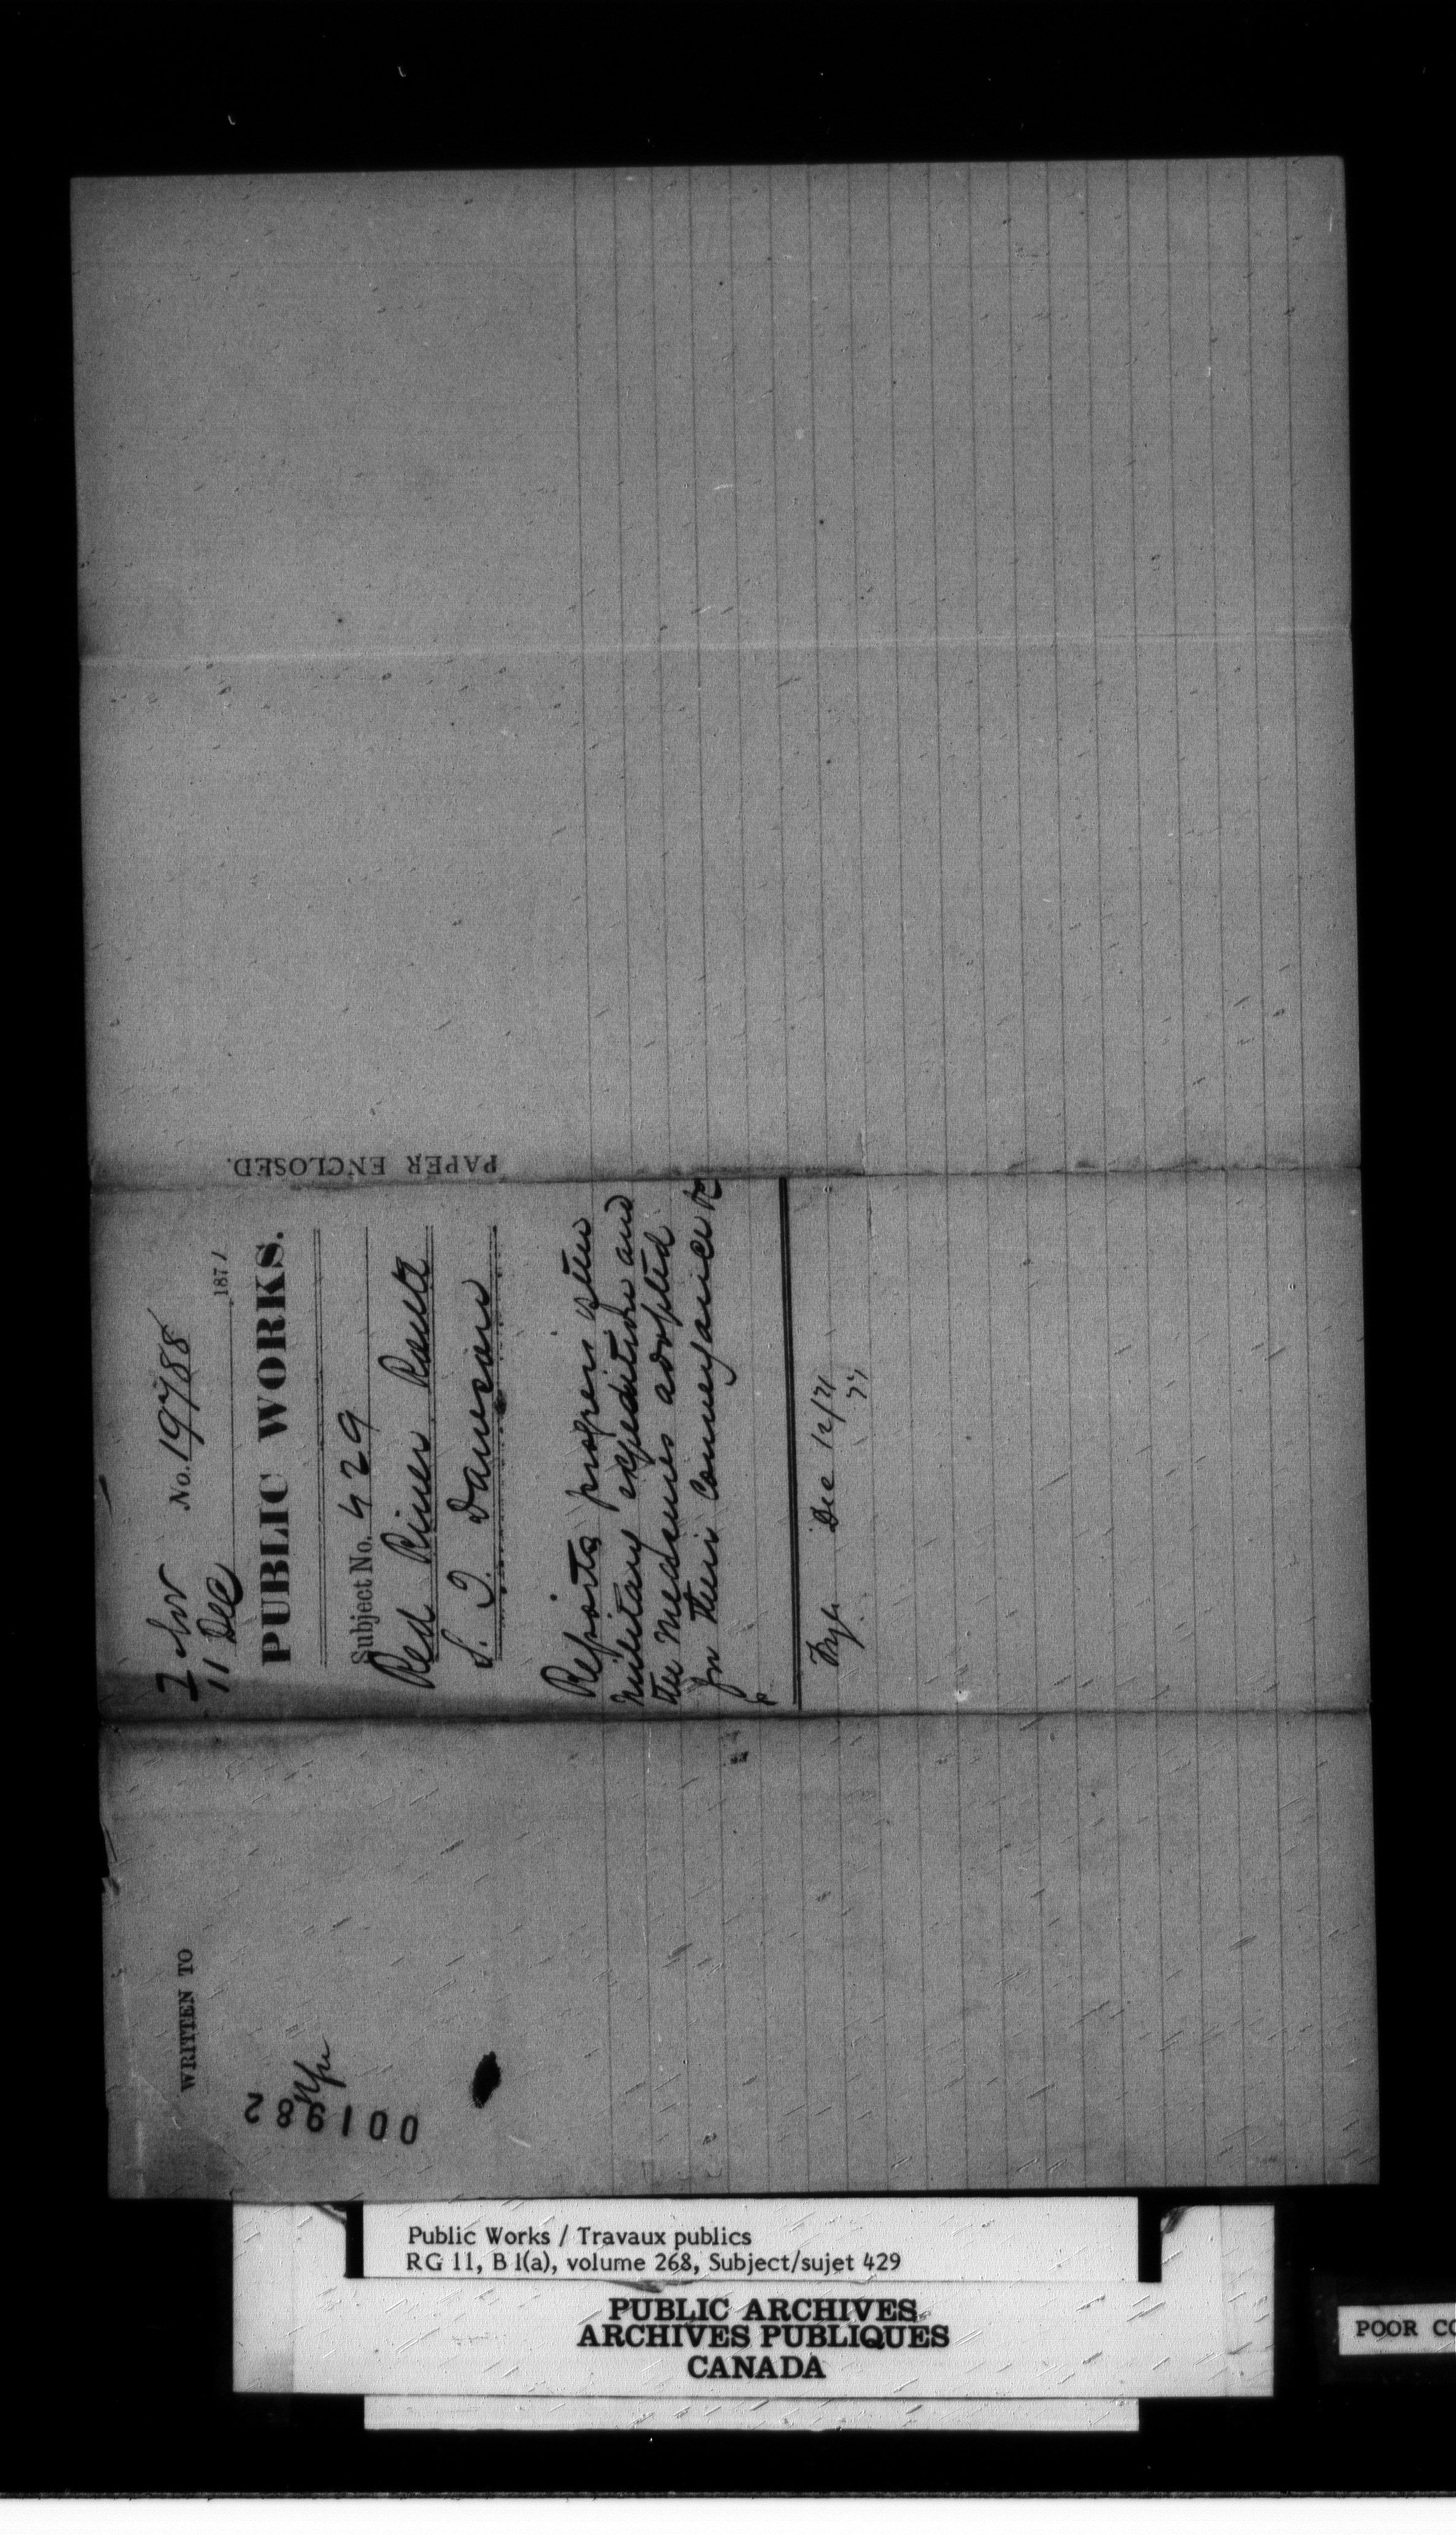 No. 19788
11 Dec 1871
PUBLIC WORKS.
Subject No. 429
Red River Route
S. J. Dawson
Reports progress of the
military expedition and
the measures adopted
for their conveyance &c
Dec 12/71
77
PAPER ENCLOSED.
WRITTEN TO
001982
Public Works / Travaux publics
RG 11, B 1(a), volume 268, Subject/sujet 429
PUBLIC ARCHIVES
ARCHIVES PUBLIQUES
CANADA
POOR